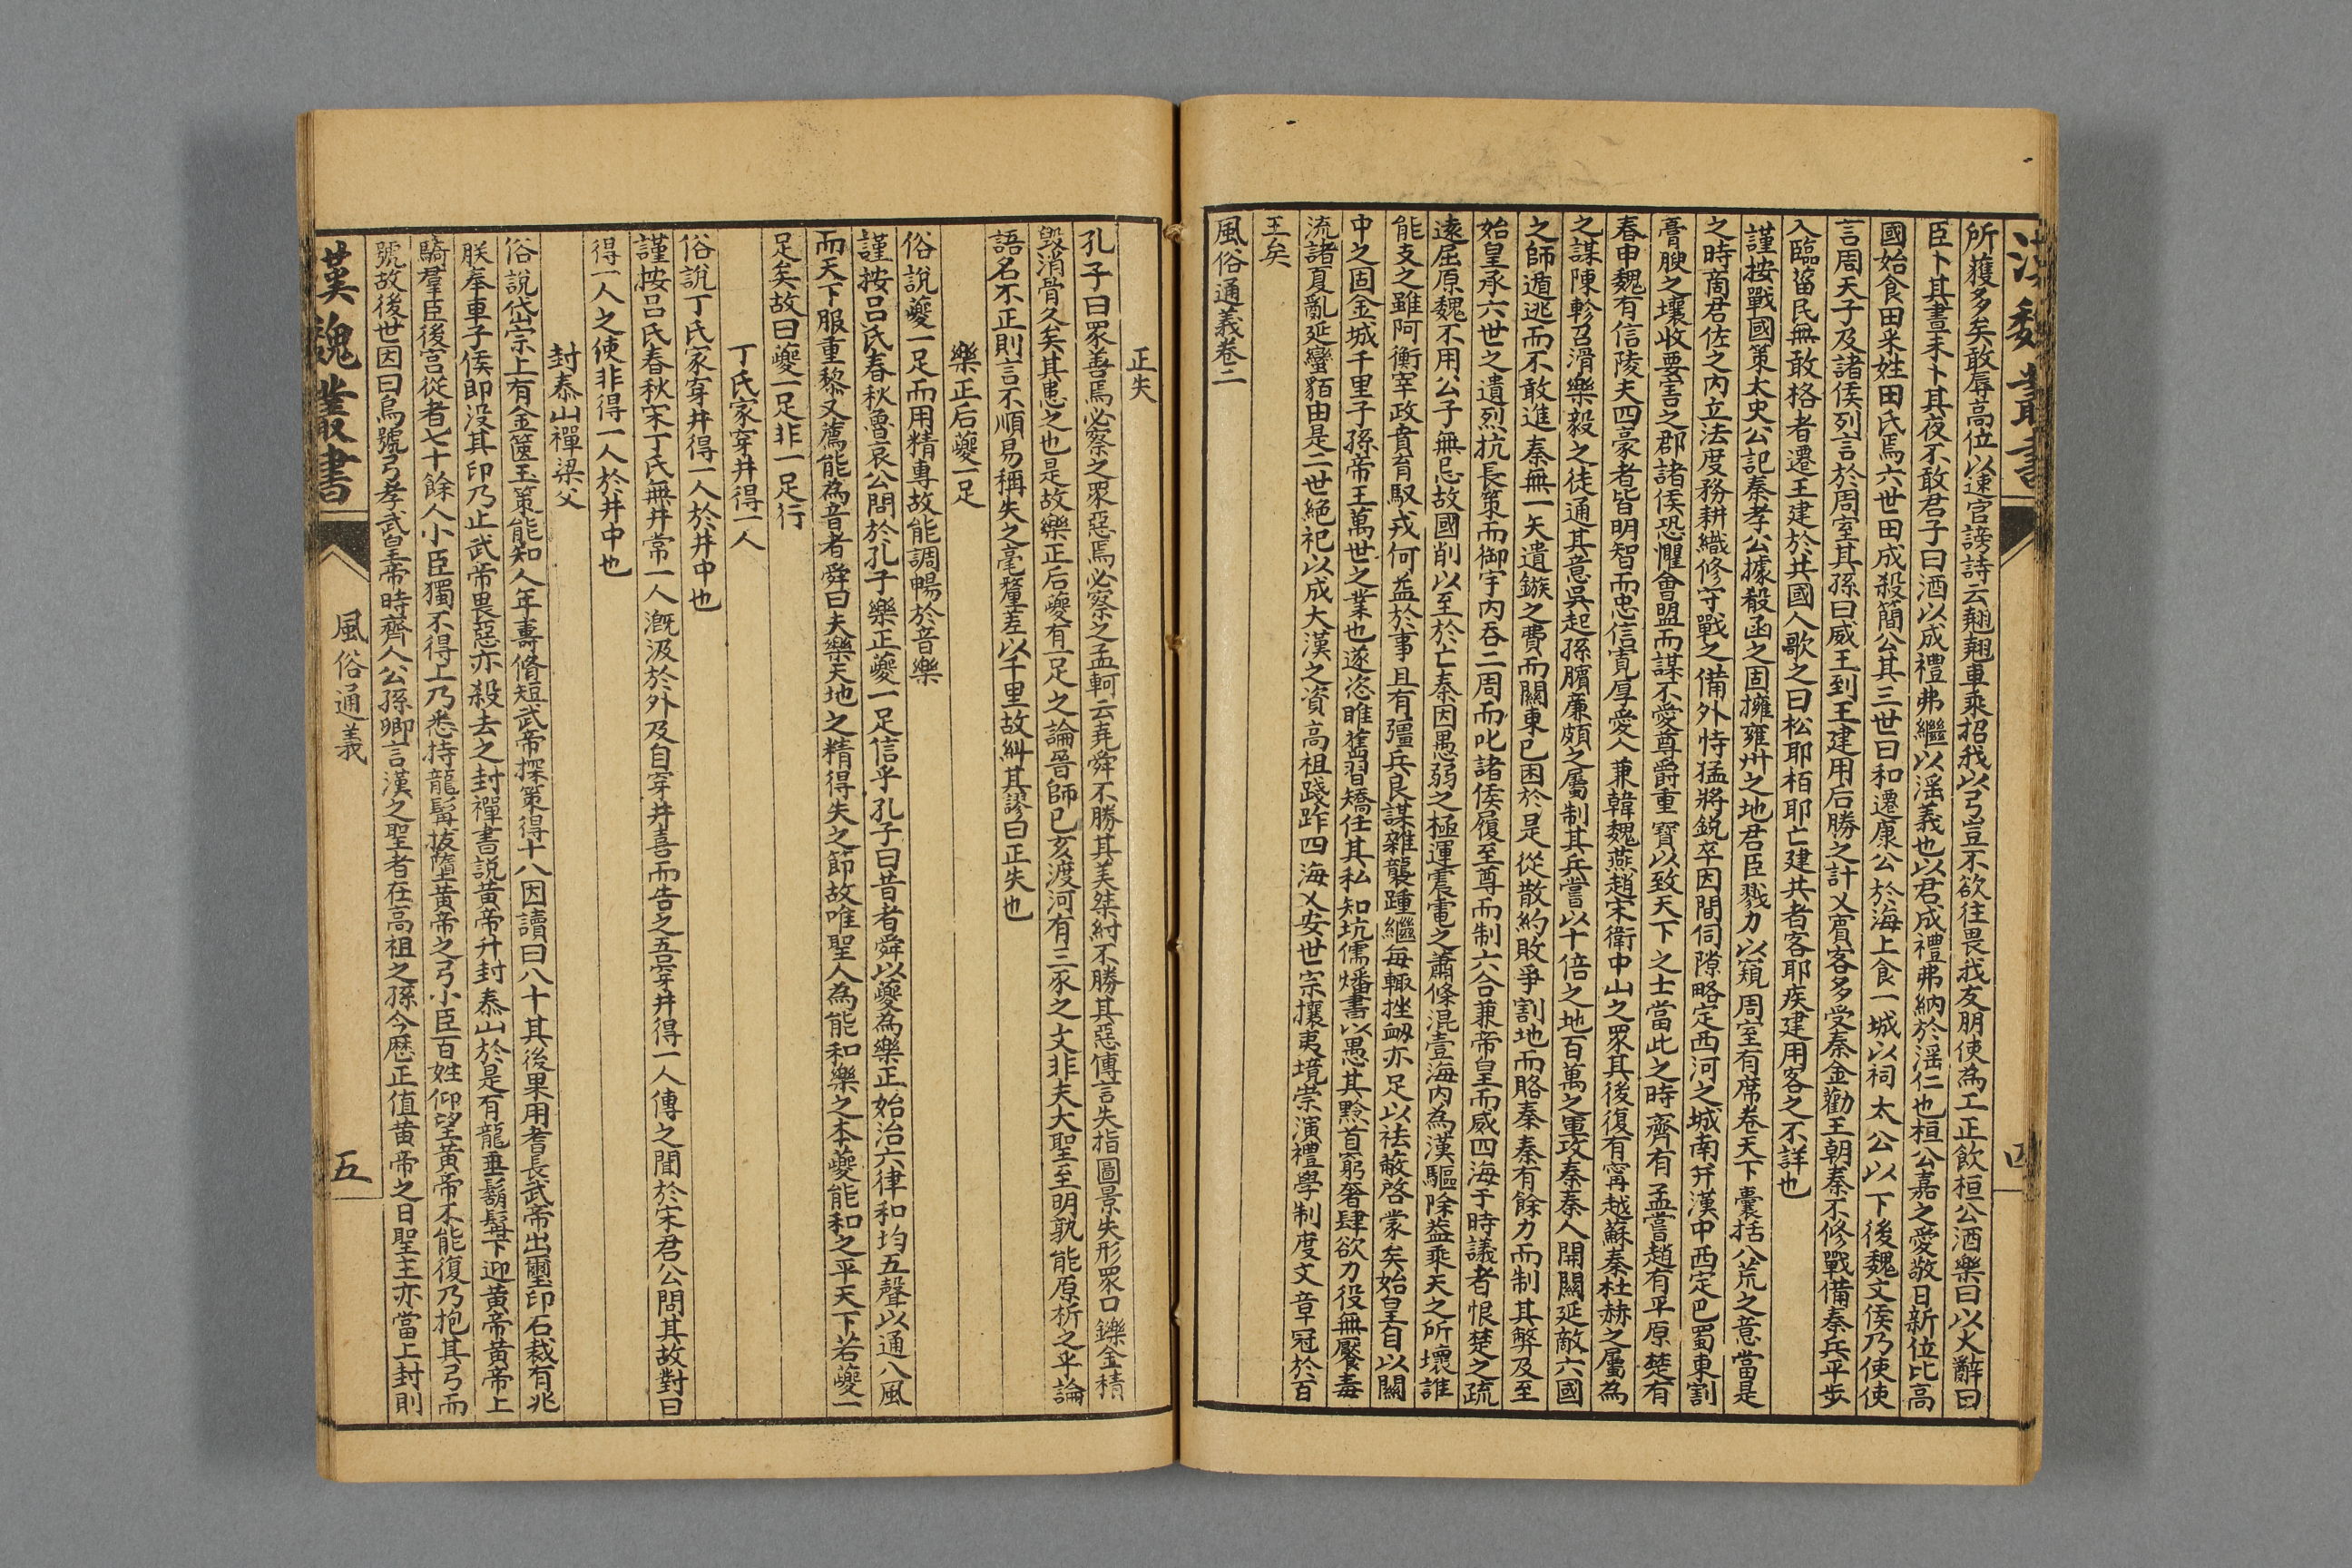 漢魏叢書
四
所獲多矣敢辱高位以速官謗詩云翹翹車乘招我以弓豈不欲往畏我友朋使為工正飲桓公酒樂曰以火辭曰
臣卜其晝未卜其夜不敢君子曰酒以成禮弗繼以淫義也以君成禮弗納於淫仁也桓公嘉之愛敬日新位比高
國始食田采姓田氏焉六世田成殺簡公其三世曰和遷康公於海上食一城以祠太公以下後魏文侯乃使使
言周天子及諸侯列言於周室其孫曰威王到王建用后勝之計乂賓客多受秦金勸王朝秦不修戰備秦兵平步
入臨菑民無敢格者遷王建於共國人歌之曰松耶栢耶亡建共者客耶疾建用客之不詳也
謹按戰國策太史公記秦孝公據殽函之固擁雍州之地君臣戮力以窺周室有席卷天下囊括八荒之意當是
之時商君佐之內立法度務耕織修守戰之備外恃猛將銳卒因間伺隙略定西河之城南并漢中西定巴蜀東割
膏腴之壤收要害之郡諸侯恐懼會盟而謀不愛尊爵重寶以致天下之士當此之時齊有孟嘗趙有平原楚有
春申魏有信陵夫四豪者皆明智而忠信寬厚愛人兼韓魏燕趙宋衛中山之眾其後復有甯越蘇秦杜赫之屬為
之謀陳軫召滑樂毅之徒通其意吳起孫臏廉頗之屬制其兵嘗以十倍之地百萬之軍攻秦秦人開關延敵六國
之師遁逃而不敢進秦無一矢遺鏃之費而關東已困於是從散約敗爭割地而賂秦秦有餘力而制其弊及至
始皇承六世之遺烈抗長策而御宇內吞二周而叱諸侯履至尊而制六合兼帝皇而威四海于時議者恨楚之疏
遠屈原魏不用公子無忌故國削以至於亡秦因愚弱之極運震電之蕭條混壹海內為漢驅除益乘天之所壞誰
能支之雖阿衡宰政賁育馭戎何益於事且有彊兵良謀雜襲踵繼每輒挫衂亦足以祛蔽啓蒙矣始皇自以關
中之固金城千里子孫帝王萬世之業也遂恣睢舊習矯任其私知坑儒燔書以愚其黔首窮奢肆欲力役無饜毒
流諸夏亂延蠻貊由是二世絕祀以成大漢之資高祖踐阼四海乂安世宗攘夷境崇演禮學制度文章冠於百
王矣
風俗通義卷二
正失
孔子曰眾善焉必察之眾惡焉必察之孟軻云堯舜不勝其美桀紂不勝其惡傳言失指圖景失形眾口鑠金積
毀消骨久矣其患之也是故樂正后夔有一足之論晉師己亥渡河有三豕之文非夫大聖至明孰能原析之乎論
語名不正則言不順易稱失之毫釐差以千里故糾其謬曰正失也
樂正后夔一足
俗說夔一足而用精專故能調暢於音樂
謹按呂氏春秋魯哀公問於孔子樂正夔一足信乎孔子曰昔者舜以夔為樂正始治六律和均五聲以通八風
而天下服重黎又薦能為音者舜曰夫樂天地之精得失之節故唯聖人為能和樂之本夔能和之平天下若夔一
足矣故曰夔一足非一足行
丁氏家穿井得一人
俗說丁氏家穿井得一人於井中也
謹按呂氏春秋宋丁氏無井常一人溉汲於外及自穿井喜而告之吾穿井得一人傳之聞於宋君公問其故對曰
得一人之使非得一人於井中也
封泰山禪梁父
俗說岱宗上有金篋玉策能知人年壽脩短武帝探策得十八因讀曰八十其後果用耆長武帝出璽印石裁有兆
朕奉車子侯即沒其印乃止武帝畏惡亦殺去之封禪書說黃帝升封泰山於是有龍垂鬍髯下迎黃帝黃帝上
騎羣臣後宮從者七十餘人小臣獨不得上乃悉持龍髯拔墮黃帝之弓小臣百姓仰望黃帝不能復乃抱其弓而
號故後世因曰烏號弓孝武皇帝時齊人公孫卿言漢之聖者在高祖之孫今歷正值黃帝之日聖主亦當上封則
漢魏叢書
風俗通義
五